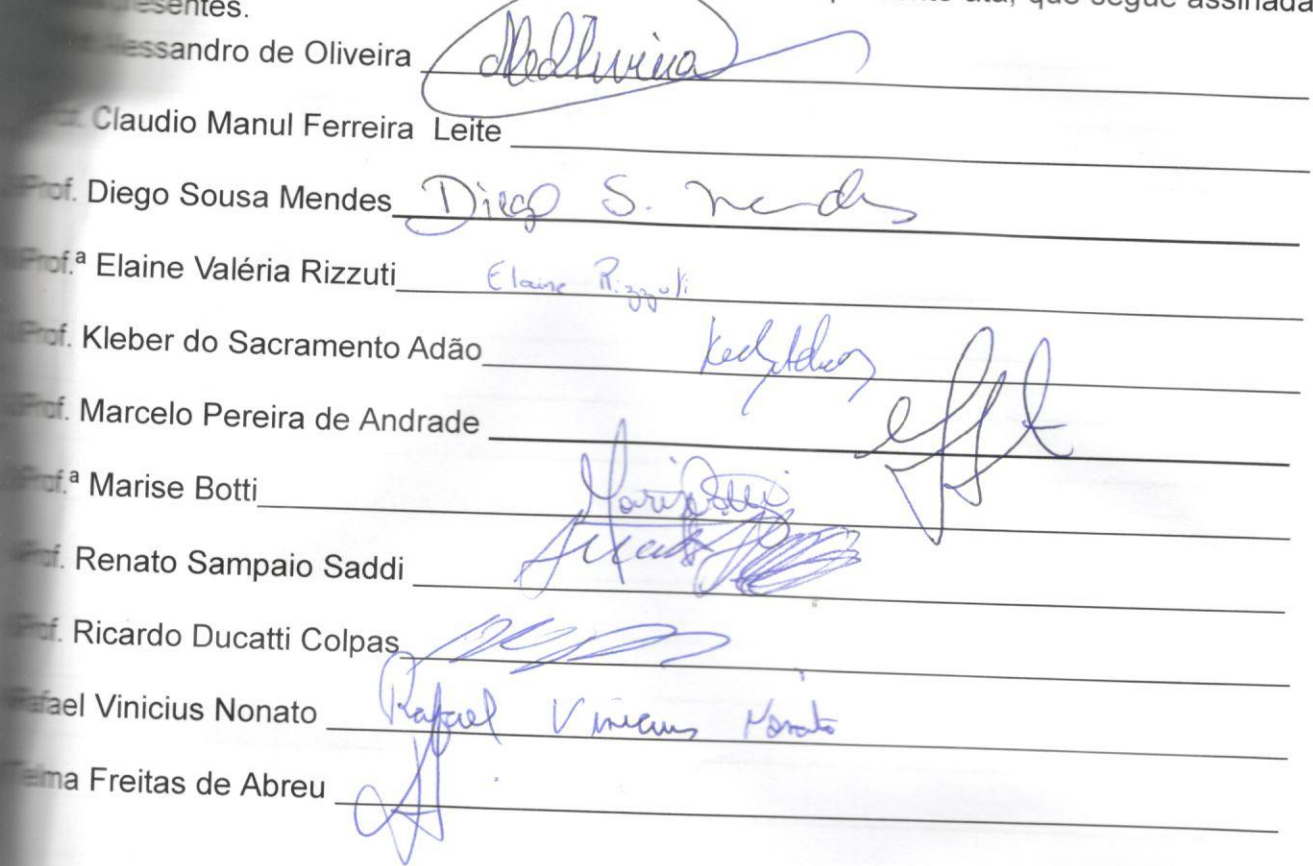 presentes. ata, que segue assinada
Alessandro de Oliveira
Claudio Manul Ferreira Leite
Prof. Diego Sousa Mendes Diego S. Mendes
Prof.ª Elaine Valéria Rizzuti Elaine Rizzuti
Prof. Kleber do Sacramento Adão
Prof. Marcelo Pereira de Andrade
Prof.ª Marise Botti
Prof. Renato Sampaio Saddi
Prof. Ricardo Ducatti Colpas
Rafael Vinicius Nonato Rafael Vinicius Nonato
Telma Freitas de Abreu